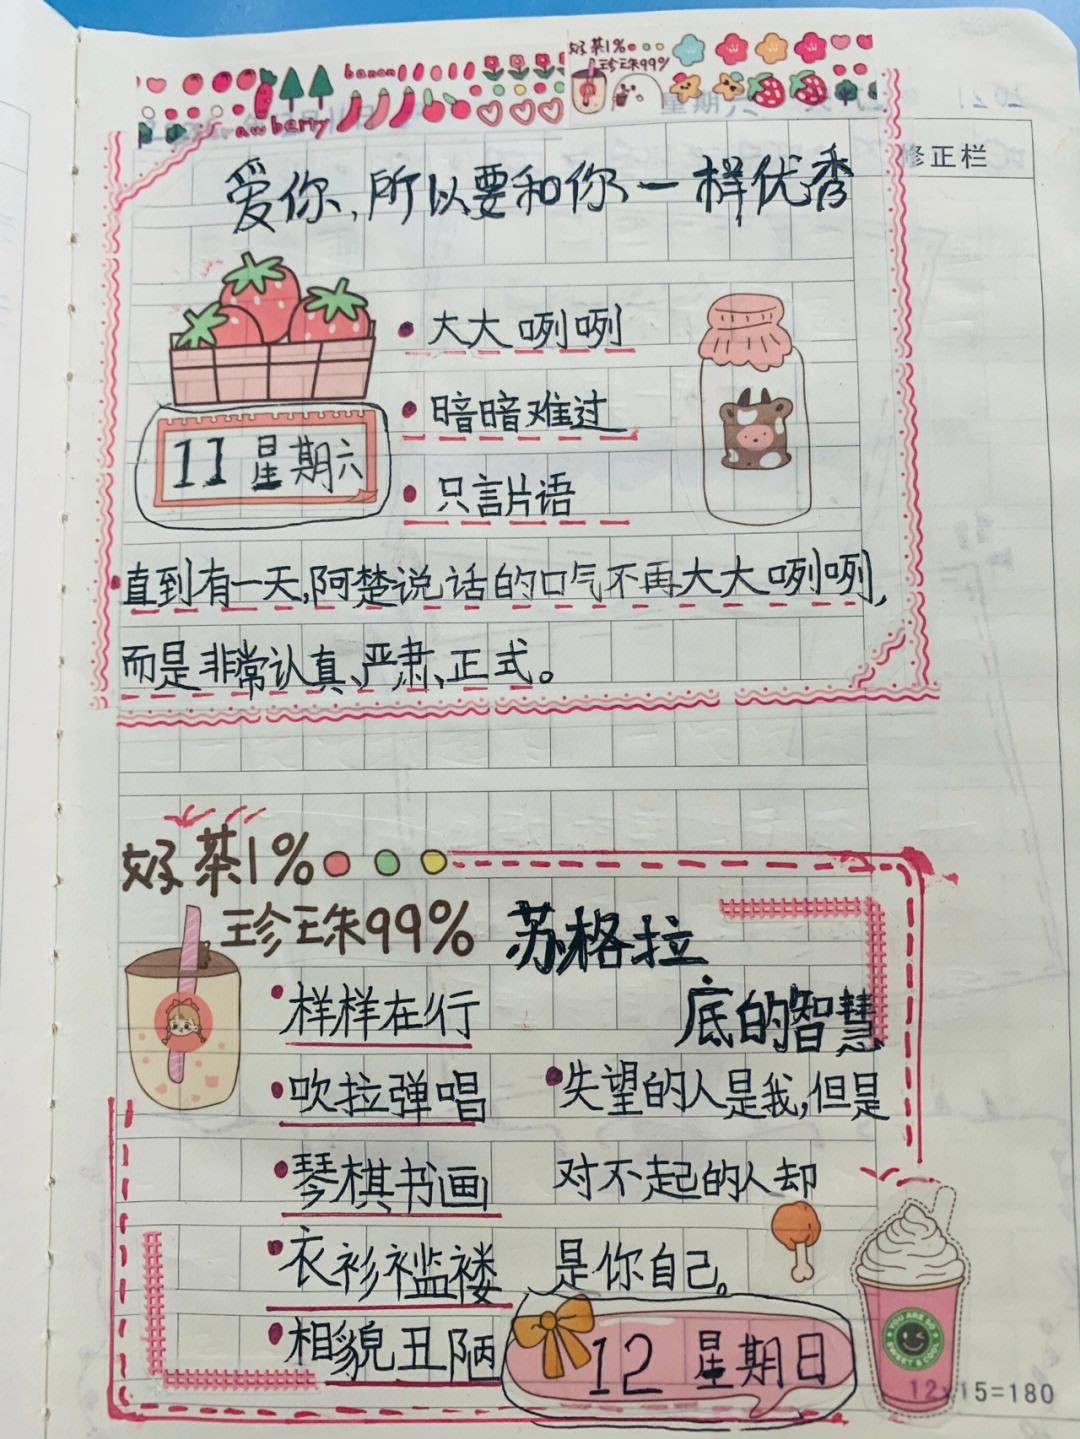 好茶1%
珍珠99%
banana
strawberry
星期六
2021
修正栏
爱你,所以要和你一样优秀
大大咧咧
暗暗难过
11 星期六
只言片语
直到有一天,阿楚说话的口气不再大大咧咧,
而是非常认真、严肃、正式。
好茶1%
珍珠99%
苏格拉
底的智慧
样样在行
吹拉弹唱
琴棋书画
衣衫褴褛
相貌丑陋
失望的人是我,但是
对不起的人却
是你自己。
12 星期日
YOU ARE SO
SWEET & COOL
12×15=180